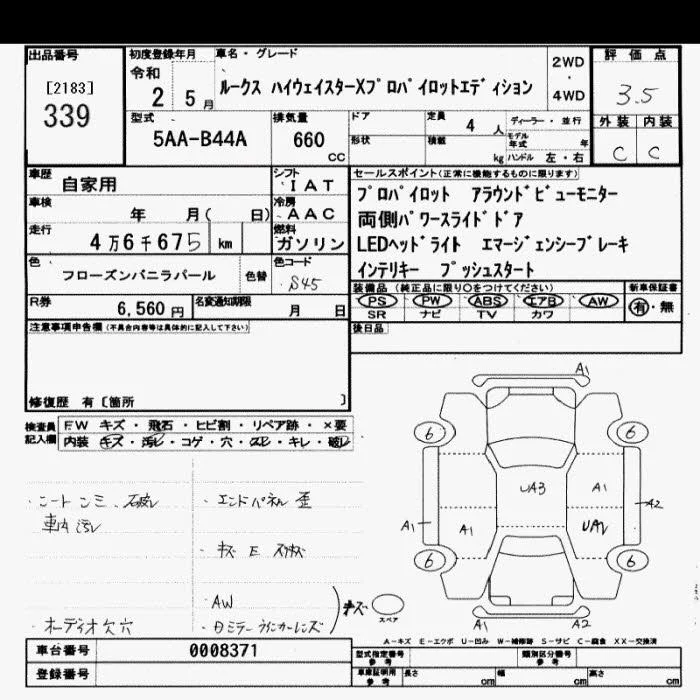 出品番号
[2183]
339
初度登録年月
令和
2 5月
車名・グレード
ルークス ハイウェイスターXプロパイロットエディション
2WD
・
4WD
評価点
3.5
外装 内装
C C
型式
5AA-B44A
排気量
660
CC
ドア
形状
定員
4人
積載
kg
ディーラー・並行
モデル年式 年
ハンドル 左・右
車歴
自家用
シフト
IAT
車検
年 月( 日)
冷房
AAC
走行
4万6千675 km
燃料
ガソリン
色
フローズンバニラパール
色替
色コード
S45
R券
6,560円
名変通知期限
月 日
セールスポイント(正常に機能するものに限ります)
プロパイロット アラウンドビューモニター
両側パワースライドドア
LEDヘッドライト エマージェンシーブレーキ
インテリキー プッシュスタート
装備品 (純正品に限り○をつけてください)
PS PW ABS エアB AW
SR ナビ TV カワ
新車保証書
有・無
後日品
注意事項申告欄(不具合内容等は具体的に記入して下さい)
修復歴 有〔箇所 〕
検査員記入欄
FW キズ・飛石・ヒビ割・リペア跡・×要
内装 キズ・汚レ・コゲ・穴・スレ・キレ・破レ
破レ
車内汚レ
・オーディオ欠穴
・エンドパネル 歪
・キズ E
・AW
・Dミラーウインカーレンズ
キズ
スペア
A1
6 6
UA3 A1
A1 A1 UA1 A2
6 6
A1 A2
A-キズ E-エクボ U-凹み W-補修跡 S-サビ C-腐食 XX-交換済
車台番号
0008371
登録番号
型式指定番号
参考
類別区分番号
参考
車庫証明用
参考
長さ cm
幅 cm
高さ cm